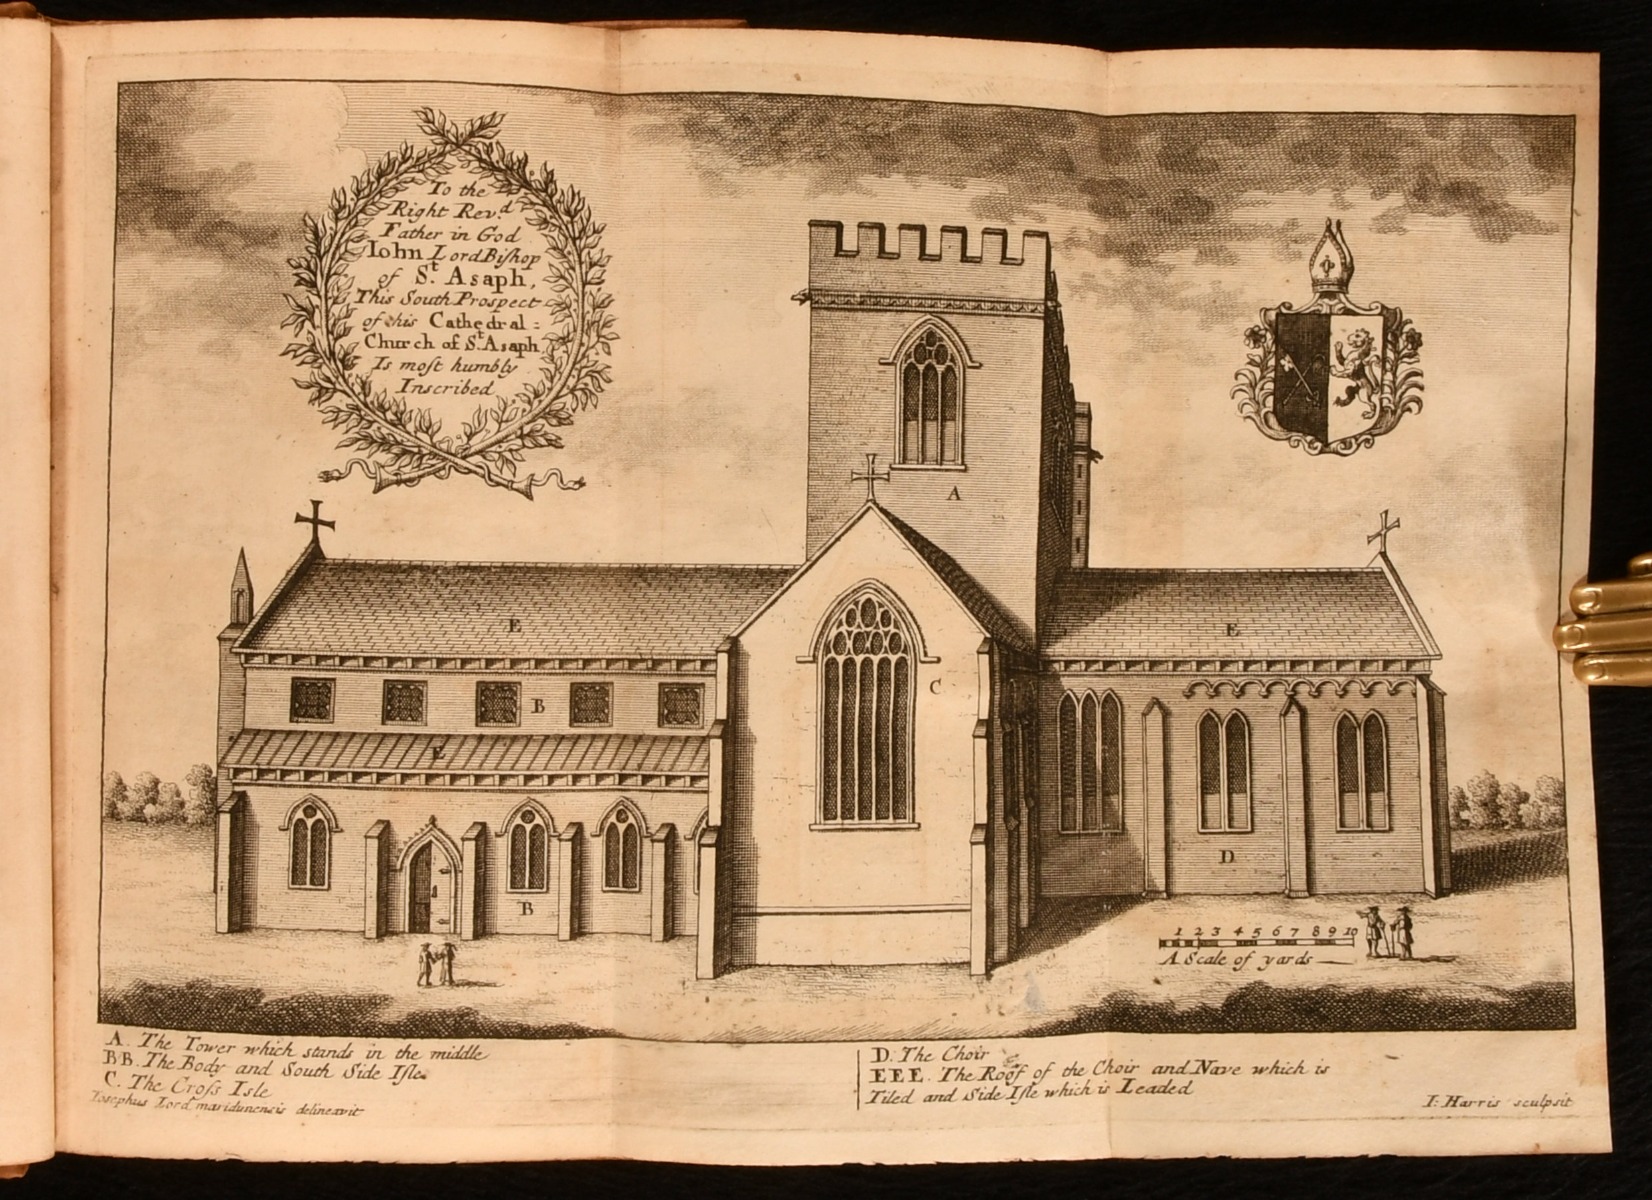 To the
Right Rev.d
Father in God
Iohn Lord Biſhop
of St. Asaph,
This South Prospect
of his Cathedral =
Church of St. Asaph
Is moſt humbly
Inscribed
A
E
E
B
C
E
B
D
1 2 3 4 5 6 7 8 9 10
A Scale of yards
A. The Tower which stands in the middle
BB. The Body and South Side Iſle.
C. The Croſs Isle
Iosephus Lord maridunensis delineavit
D. The Choir
EEE. The Roof of the Choir and Nave which is
Tiled and Side Iſle which is Leaded
I: Harris sculpsit